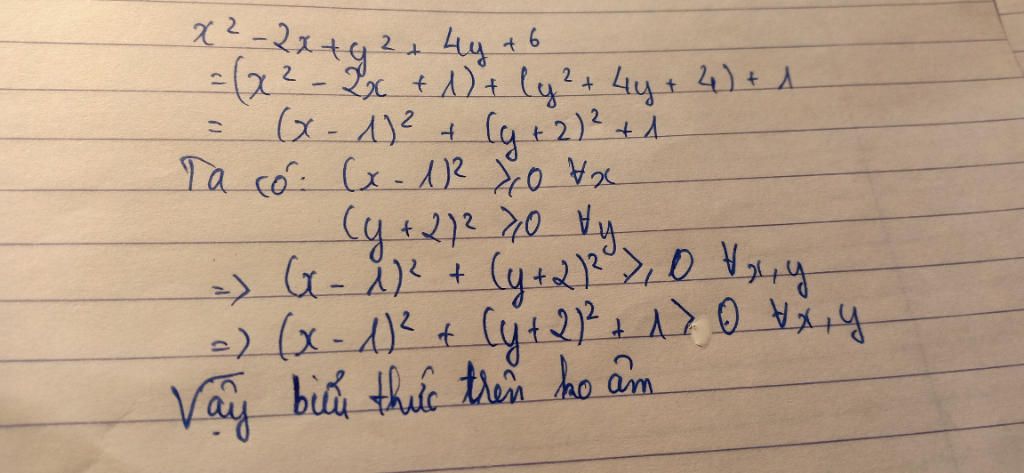 x² - 2x + y² + 4y + 6
= (x² - 2x + 1) + (y² + 4y + 4) + 1
= (x - 1)² + (y + 2)² + 1
Ta có: (x - 1)² ≥ 0 ∀x
(y + 2)² ≥ 0 ∀y
=> (x - 1)² + (y + 2)² ≥ 0 ∀x, y
=> (x - 1)² + (y + 2)² + 1 > 0 ∀x, y
Vậy biểu thức trên ko âm